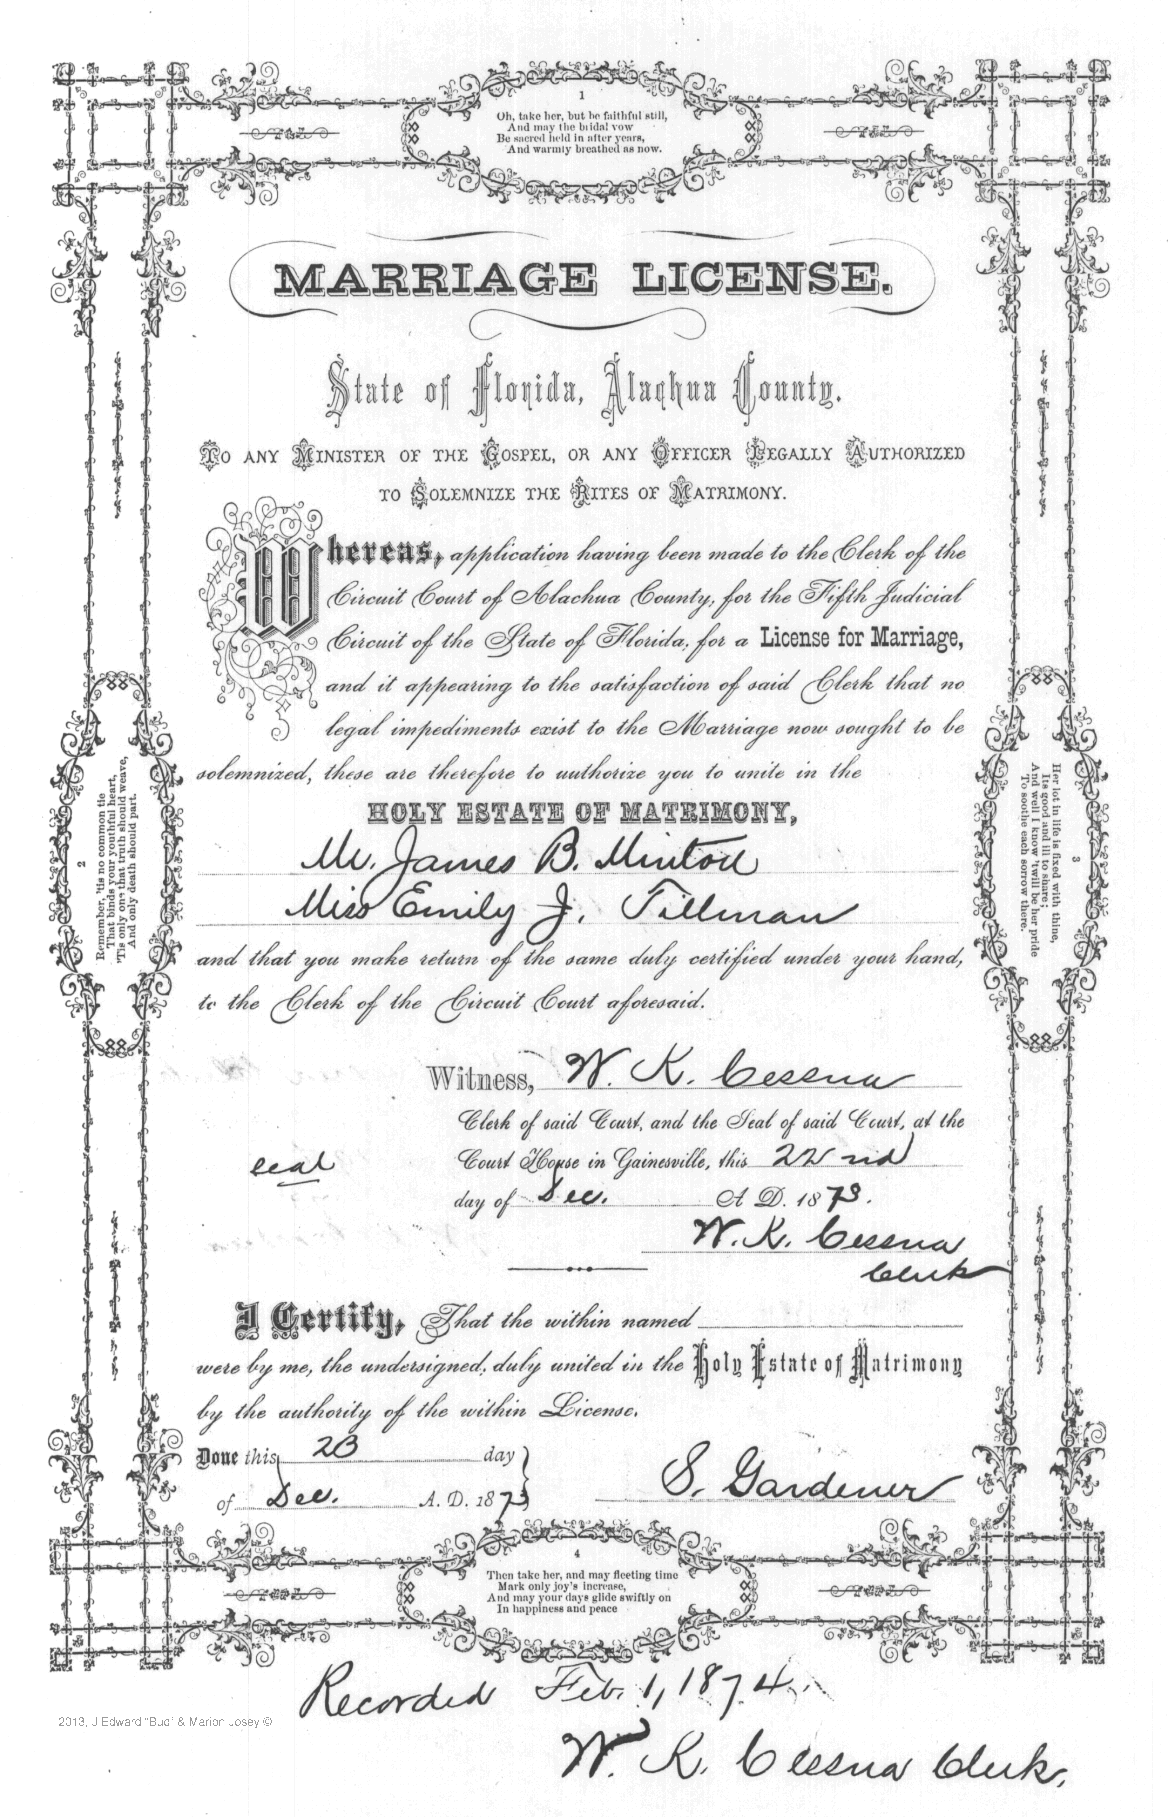 1
Oh, take her, but be faithful still,
And may the bridal vow
Be sacred held in after years,
And warmly breathed as now.
MARRIAGE LICENSE.
State of Florida, Alachua County.
TO ANY MINISTER OF THE GOSPEL, OR ANY OFFICER LEGALLY AUTHORIZED
TO SOLEMNIZE THE RITES OF MATRIMONY.
Whereas, application having been made to the Clerk of the
Circuit Court of Alachua County, for the Fifth Judicial
Circuit of the State of Florida, for a License for Marriage,
and it appearing to the satisfaction of said Clerk that no
legal impediments exist to the Marriage now sought to be
solemnized, these are therefore to authorize you to unite in the
HOLY ESTATE OF MATRIMONY,
Mr. James B. Minton
Miss Emily J. Tillman
and that you make return of the same duly certified under your hand,
to the Clerk of the Circuit Court aforesaid.
2
Remember, 'tis no common tie
That binds your youthful heart,
'Tis only one that truth should weave,
And only death should part.
3
Her lot in life is fixed with thine,
Its good and ill to share;
And well I know 'twill be her pride
To soothe each sorrow there.
Witness, W. K. Cessna
Clerk of said Court, and the Seal of said Court, at the
seal
Court House in Gainesville, this 22nd
day of Dec. A D. 1873.
W. K. Cessna
Clerk
I Certify, That the within named
were by me, the undersigned, duly united in the Holy Estate of Matrimony
by the authority of the within License.
Done this 23 day
of Dec. A. D. 1873
S. Gardener
4
Then take her, and may fleeting time
Mark only joy's increase,
And may your days glide swiftly on
In happiness and peace
Recorded Feb. 1, 1874.
2013, J Edward "Bud" & Marion Josey ©
W. K. Cessna Clerk.